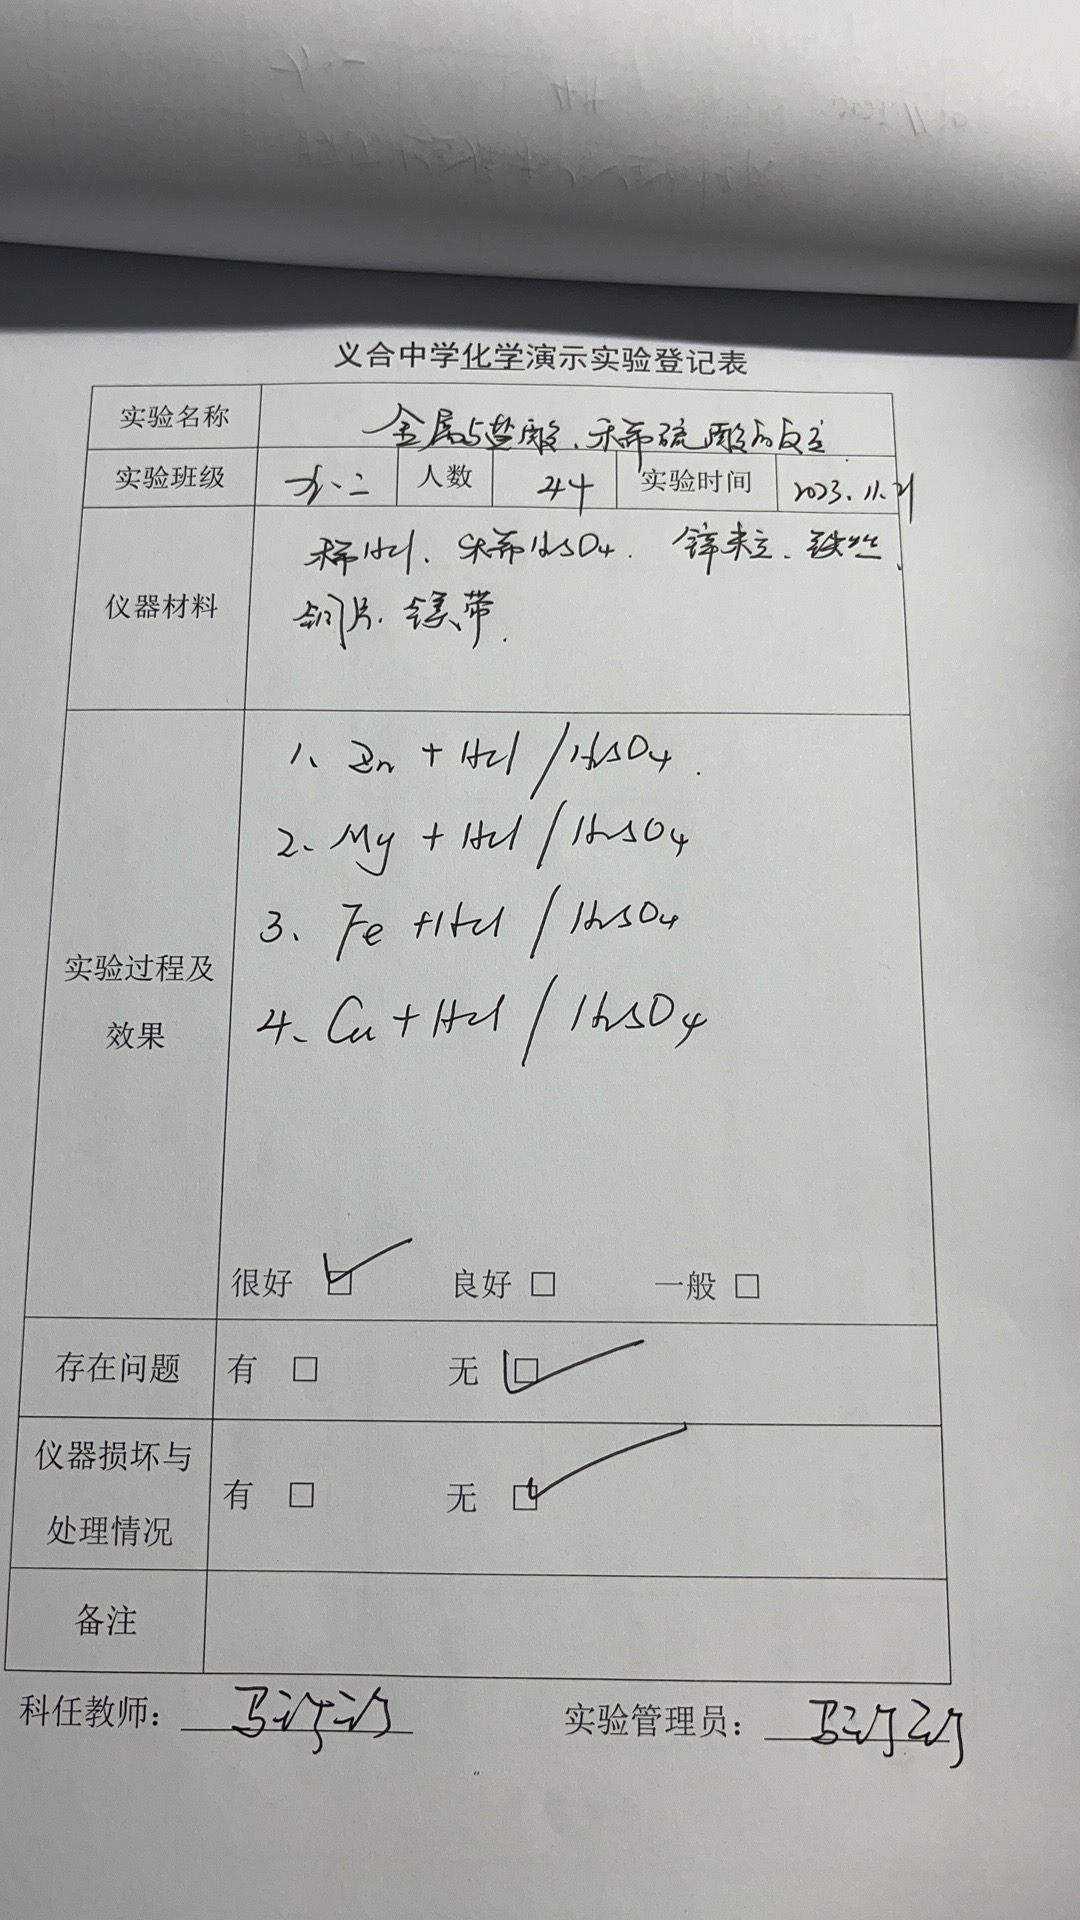 义合中学化学演示实验登记表
实验名称 金属与盐酸、稀硫酸的反应
实验班级 九.二 人数 44 实验时间 2023.11.21
仪器材料 稀HCl、稀H2SO4. 锌粒、铁丝、
铜片、镁带.
1、Zn + HCl / H2SO4.
2、Mg + HCl / H2SO4
3、Fe + HCl / H2SO4
4、Cu + HCl / H2SO4
实验过程及
效果
很好 ☑ 良好 □ 一般 □
存在问题 有 □ 无 ☑
仪器损坏与
处理情况
有 □ 无 ☑
备注
科任教师： 实验管理员：